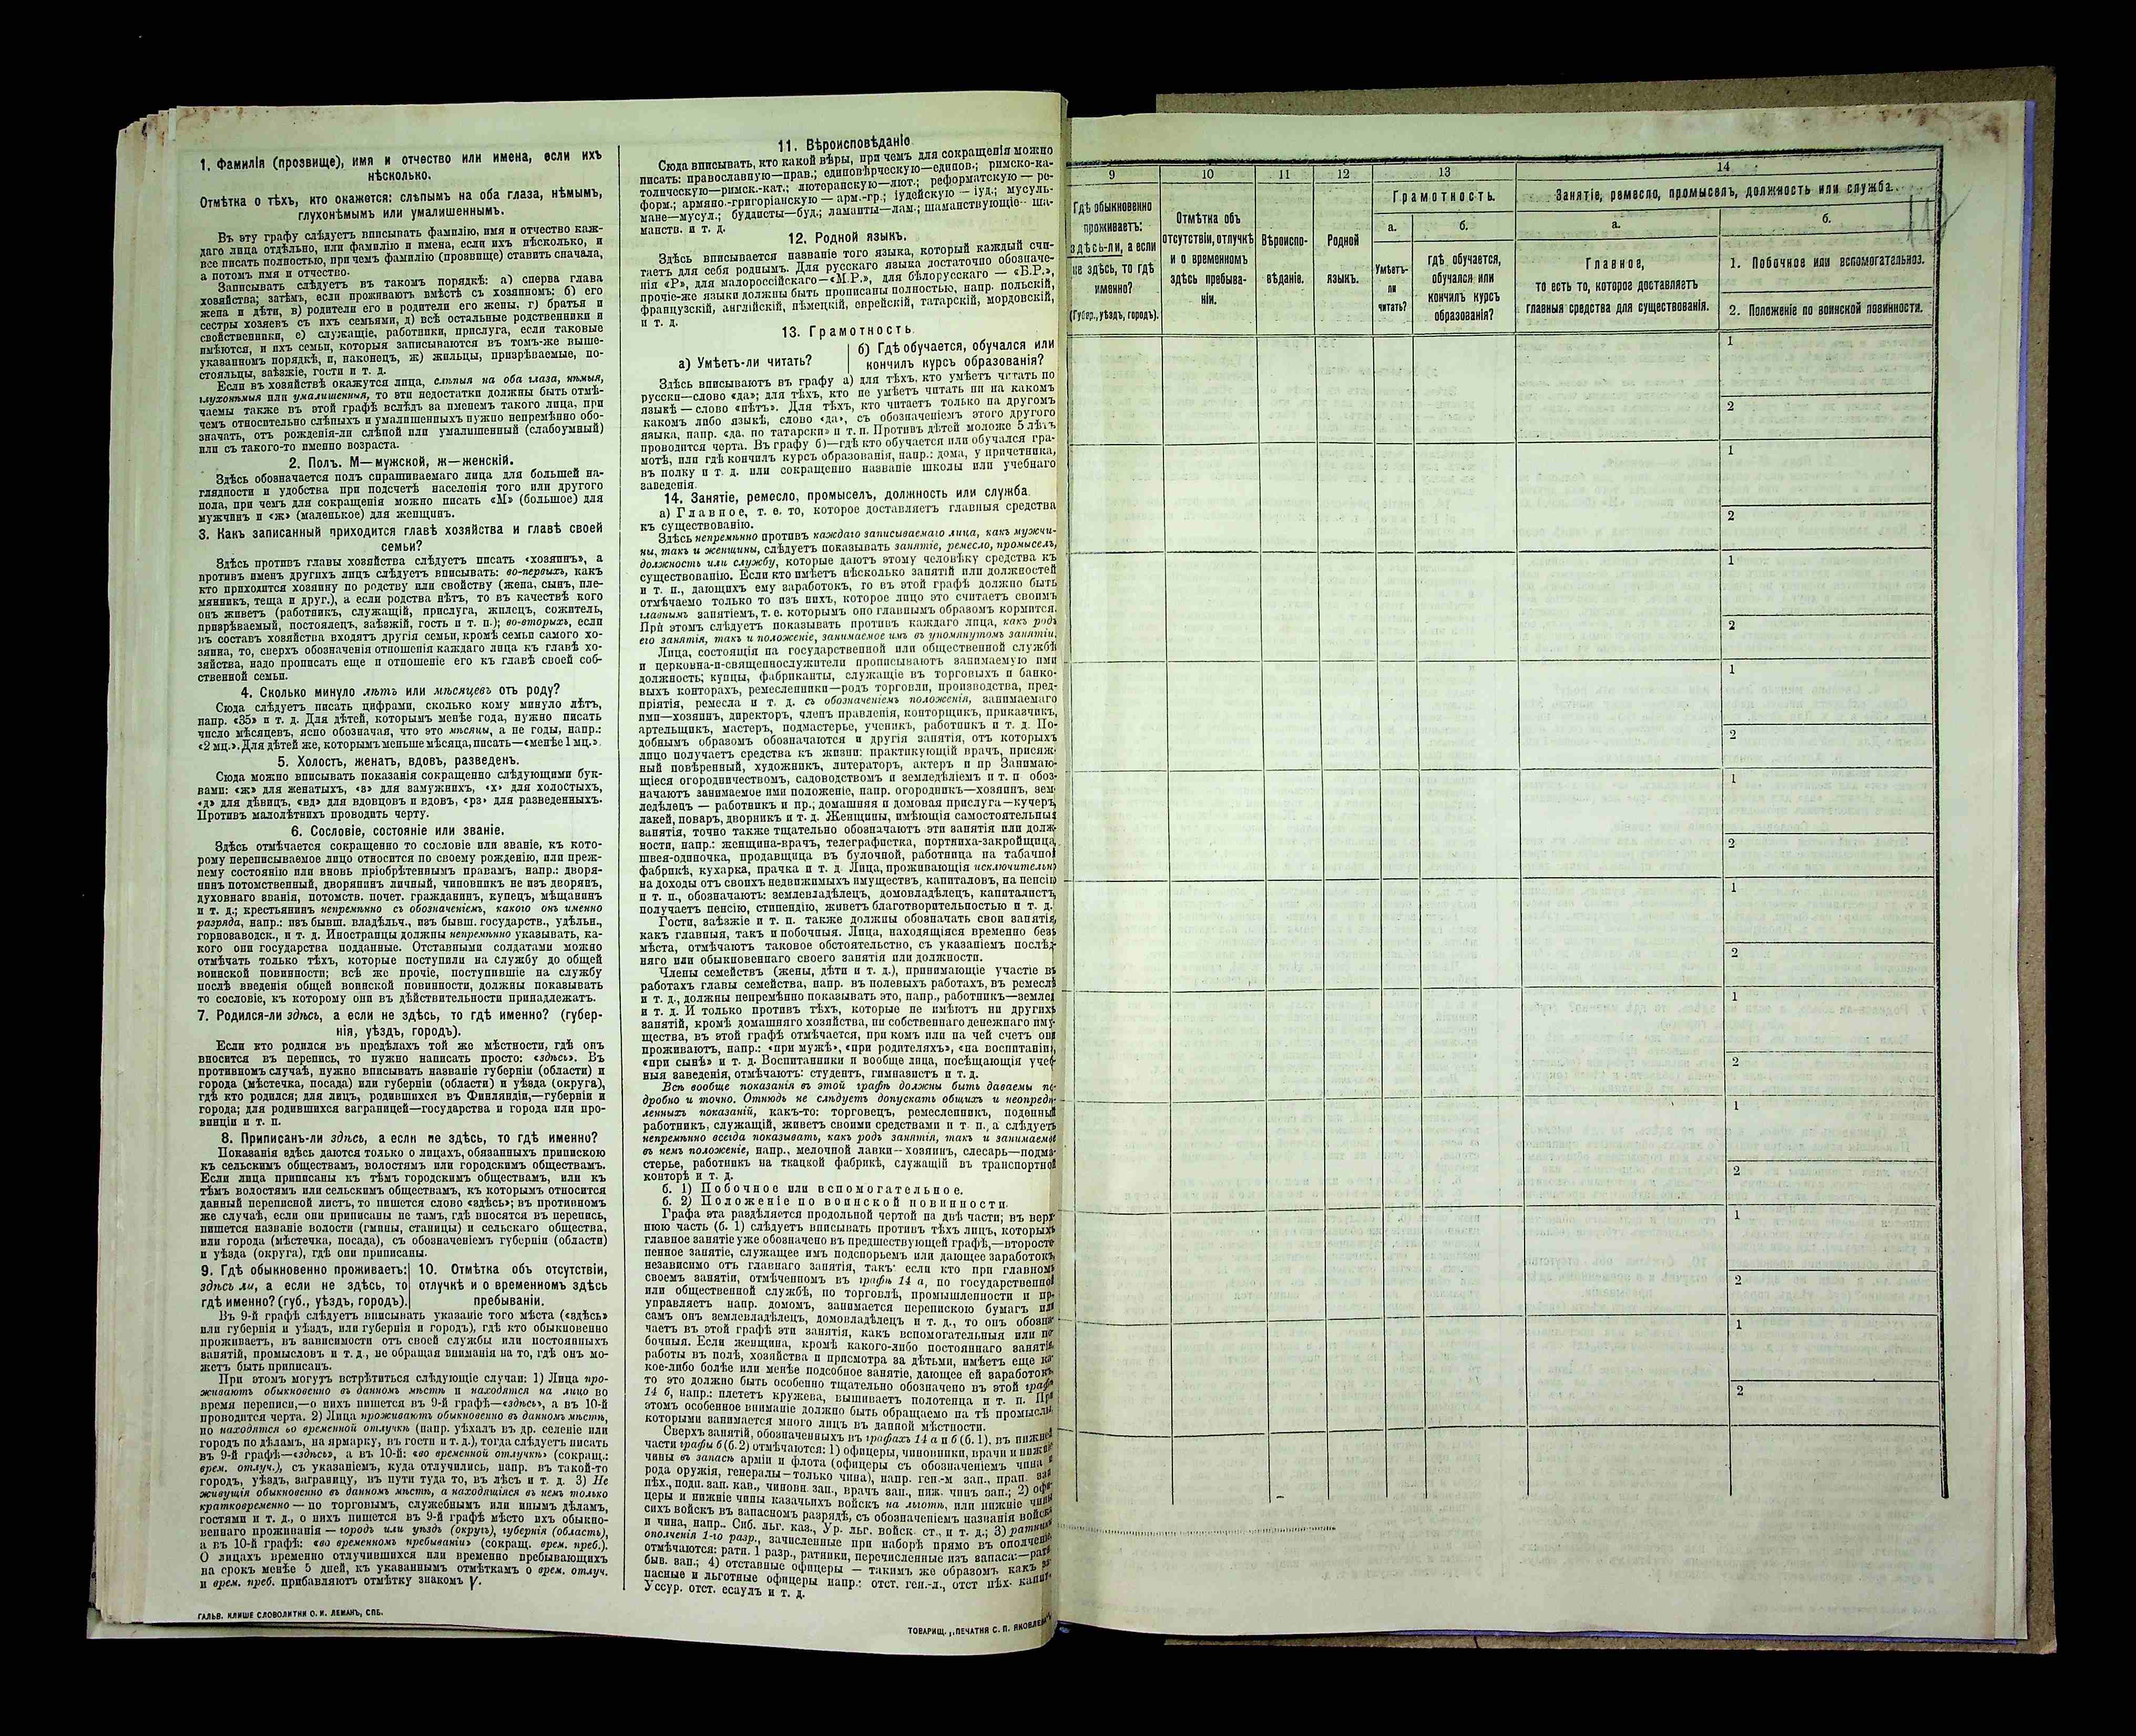 1. Фамилія (прозвище), имя и отчество или имена, если ихъ
нѣсколько.
Отмѣтка о тѣхъ, кто окажется: слѣпымъ на оба глаза, нѣмымъ,
глухонѣмымъ или умалишеннымъ.
Въ эту графу слѣдуетъ вписывать фамилію, имя и отчество каж-
даго лица отдѣльно, или фамилію и имена, если ихъ нѣсколько, и
все писать полностью, при чемъ фамилію (прозвище) ставить сначала,
а потомъ имя и отчество.
Записывать слѣдуетъ въ такомъ порядкѣ: а) сперва глава
хозяйства; затѣмъ, если проживаютъ вмѣстѣ съ хозяиномъ: б) его
жена и дѣти, в) родители его и родители его жены, г) братья и
сестры хозяевъ съ ихъ семьями, д) всѣ остальные родственники и
свойственники, е) служащіе, работники, прислуга, если таковые
имѣются, и ихъ семьи, которыя записываются въ томъ-же выше-
указанномъ порядкѣ, и, наконецъ, ж) жильцы, призрѣваемые, по-
стояльцы, заѣзжіе, гости и т. д.
Если въ хозяйствѣ окажутся лица, слѣпыя на оба глаза, нѣмыя,
глухонѣмыя или умалишенныя, то эти недостатки должны быть отмѣ-
чаемы также въ этой графѣ вслѣдъ за именемъ такого лица, при
чемъ относительно слѣпыхъ и умалишенныхъ нужно непремѣнно обо-
значать, отъ рожденія-ли слѣпой или умалишенный (слабоумный)
или съ такого-то именно возраста.
2. Полъ. М—мужской, ж—женскій.
Здѣсь обозначается полъ спрашиваемаго лица для большей на-
глядности и удобства при подсчетѣ населенія того или другого
пола, при чемъ для сокращенія можно писать «М» (большое) для
мужчинъ и «ж» (маленькое) для женщинъ.
3. Какъ записанный приходится главѣ хозяйства и главѣ своей
семьи?
Здѣсь противъ главы хозяйства слѣдуетъ писать «хозяинъ», а
противъ именъ другихъ лицъ слѣдуетъ вписывать: во-первыхъ, какъ
кто приходится хозяину по родству или свойству (жена, сынъ, пле-
мянникъ, теща и друг.), а если родства нѣтъ, то въ качествѣ кого
онъ живетъ (работникъ, служащій, прислуга, жилецъ, сожитель,
призрѣваемый, постоялецъ, заѣзжій, гость и т. п.); во-вторыхъ, если
въ составъ хозяйства входятъ другія семьи, кромѣ семьи самого хо-
зяина, то, сверхъ обозначенія отношенія каждаго лица къ главѣ хо-
зяйства, надо прописать еще и отношеніе его къ главѣ своей соб-
ственной семьи.
4. Сколько минуло лѣтъ или мѣсяцевъ отъ роду?
Сюда слѣдуетъ писать цифрами, сколько кому минуло лѣтъ,
напр. «35» и т. д. Для дѣтей, которымъ менѣе года, нужно писать
число мѣсяцевъ, ясно обозначая, что это мѣсяцы, а не годы, напр.:
«2 мц.». Для дѣтей же, которымъ меньше мѣсяца, писать—«менѣе 1 мц.».
5. Холостъ, женатъ, вдовъ, разведенъ.
Сюда можно вписывать показанія сокращенно слѣдующими бук-
вами: «ж» для женатыхъ, «з» для замужнихъ, «х» для холостыхъ,
«д» для дѣвицъ, «вд» для вдовцовъ и вдовъ, «рз» для разведенныхъ.
Противъ малолѣтнихъ проводить черту.
6. Сословіе, состояніе или званіе.
Здѣсь отмѣчается сокращенно то сословіе или званіе, къ кото-
рому переписываемое лицо относится по своему рожденію, или преж-
нему состоянію или вновь пріобрѣтеннымъ правамъ, напр.: дворя-
нинъ потомственный, дворянинъ личный, чиновникъ не изъ дворянъ,
духовнаго званія, потомств. почет. гражданинъ, купецъ, мѣщанинъ
и т. д.; крестьянинъ непремѣнно съ обозначеніемъ, какого онъ именно
разряда, напр.: изъ бывш. владѣльч., изъ бывш. государств., удѣльн.,
горнозаводск., и т. д. Иностранцы должны непремѣнно указывать, ка-
кого они государства подданные. Отставными солдатами можно
отмѣчать только тѣхъ, которые поступили на службу до общей
воинской повинности; всѣ же прочіе, поступившіе на службу
послѣ введенія общей воинской повинности, должны показывать
то сословіе, къ которому они въ дѣйствительности принадлежатъ.
7. Родился-ли здѣсь, а если не здѣсь, то гдѣ именно? (губер-
нія, уѣздъ, городъ).
Если кто родился въ предѣлахъ той же мѣстности, гдѣ онъ
вносится въ перепись, то нужно написать просто: «здѣсь». Въ
противномъ случаѣ, нужно вписывать названіе губерніи (области) и
города (мѣстечка, посада) или губерніи (области) и уѣзда (округа),
гдѣ кто родился; для лицъ, родившихся въ Финляндіи,—губерніи и
города; для родившихся заграницей—государства и города или про-
винціи и т. п.
8. Приписанъ-ли здѣсь, а если не здѣсь, то гдѣ именно?
Показанія здѣсь даются только о лицахъ, обязанныхъ припискою
къ сельскимъ обществамъ, волостямъ или городскимъ обществамъ.
Если лица приписаны къ тѣмъ городскимъ обществамъ, или къ
тѣмъ волостямъ или сельскимъ обществамъ, къ которымъ относится
данный переписной листъ, то пишется слово «здѣсь»; въ противномъ
же случаѣ, если они приписаны не тамъ, гдѣ вносятся въ перепись,
пишется названіе волости (гмины, станицы) и сельскаго общества,
или города (мѣстечка, посада), съ обозначеніемъ губерніи (области)
и уѣзда (округа), гдѣ они приписаны.
9. Гдѣ обыкновенно проживаетъ:
здѣсь ли, а если не здѣсь, то
гдѣ именно? (губ., уѣздъ, городъ).
10. Отмѣтка объ отсутствіи,
отлучкѣ и о временномъ здѣсь
пребываніи.
Въ 9-й графѣ слѣдуетъ вписывать указаніе того мѣста («здѣсь»
или губернія и уѣздъ, или губернія и городъ), гдѣ кто обыкновенно
проживаетъ, въ зависимости отъ своей службы или постоянныхъ
занятій, промысловъ и т. д., не обращая вниманія на то, гдѣ онъ мо-
жетъ быть приписанъ.
При этомъ могутъ встрѣтиться слѣдующіе случаи: 1) Лица про-
живаютъ обыкновенно въ данномъ мѣстѣ и находятся на лицо во
время переписи,—о нихъ пишется въ 9-й графѣ—«здѣсь», а въ 10-й
проводится черта. 2) Лица проживаютъ обыкновенно въ данномъ мѣстѣ,
но находятся во временной отлучкѣ (напр. уѣхалъ въ др. селеніе или
городъ по дѣламъ, на ярмарку, въ гости и т. д.), тогда слѣдуетъ писать
въ 9-й графѣ—«здѣсь», а въ 10-й: «во временной отлучкѣ» (сокращ.:
врем. отлуч.), съ указаніемъ, куда отлучились, напр. въ такой-то
городъ, уѣздъ, заграницу, въ пути туда то, въ лѣсъ и т. д. 3) Не
живущія обыкновенно въ данномъ мѣстѣ, а находящіяся въ немъ только
кратковременно — по торговымъ, служебнымъ или инымъ дѣламъ,
гостями и т. д., о нихъ пишется въ 9-й графѣ мѣсто ихъ обыкно-
веннаго проживанія — городъ или уѣздъ (округъ), губернія (область),
а въ 10-й графѣ: «во временномъ пребываніи» (сокращ. врем. преб.).
О лицахъ временно отлучившихся или временно пребывающихъ
на срокъ менѣе 5 дней, къ указаннымъ отмѣткамъ о врем. отлуч.
и врем. преб. прибавляютъ отмѣтку знакомъ V.
ГАЛЬВ. КЛИШЕ СЛОВОЛИТНИ О. И. ЛЕМАНЪ, СПБ.
11. Вѣроисповѣданіе.
Сюда вписывать, кто какой вѣры, при чемъ для сокращенія можно
писать: православную—прав.; единовѣрческую—единов.; римско-ка-
толическую—римск.-кат.; лютеранскую—лют.; реформатскую — ре-
форм.; армяно.-григоріанскую — арм.-гр.; іудейскую — іуд.; мусуль-
мане—мусул.; буддисты—буд.; ламаиты—лам.; шаманствующіе— ша-
манств. и т. д.
12. Родной языкъ.
Здѣсь вписывается названіе того языка, который каждый счи-
таетъ для себя роднымъ. Для русскаго языка достаточно обозначе-
нія «Р», для малороссійскаго—«М.Р.», для бѣлорусскаго — «Б.Р.»,
прочіе-же языки должны быть прописаны полностью, напр. польскій,
французскій, англійскій, нѣмецкій, еврейскій, татарскій, мордовскій,
и т. д.
13. Грамотность.
а) Умѣетъ-ли читать?
б) Гдѣ обучается, обучался или
кончилъ курсъ образованія?
Здѣсь вписываютъ въ графу а) для тѣхъ, кто умѣетъ читать по
русски—слово «да»; для тѣхъ, кто не умѣетъ читать ни на какомъ
языкѣ — слово «нѣтъ». Для тѣхъ, кто читаетъ только на другомъ
какомъ либо языкѣ, слово «да», съ обозначеніемъ этого другого
языка, напр. «да, по татарски» и т. п. Противъ дѣтей моложе 5 лѣтъ
проводится черта. Въ графу б)—гдѣ кто обучается или обучался гра-
мотѣ, или гдѣ кончилъ курсъ образованія, напр.: дома, у причетника,
въ полку и т. д. или сокращенно названіе школы или учебнаго
заведенія.
14. Занятіе, ремесло, промыселъ, должность или служба.
а) Главное, т. е. то, которое доставляетъ главныя средства
къ существованію.
Здѣсь непремѣнно противъ каждаго записываемаго лица, какъ мужчи-
ны, такъ и женщины, слѣдуетъ показывать занятіе, ремесло, промыселъ,
должность или службу, которые даютъ этому человѣку средства къ
существованію. Если кто имѣетъ нѣсколько занятій или должностей
и т. п., дающихъ ему заработокъ, то въ этой графѣ должно быть
отмѣчаемо только то изъ нихъ, которое лицо это считаетъ своимъ
главнымъ занятіемъ, т. е. которымъ оно главнымъ образомъ кормится.
При этомъ слѣдуетъ показывать противъ каждаго лица, какъ родъ
его занятія, такъ и положеніе, занимаемое имъ въ упомянутомъ занятіи.
Лица, состоящія на государственной или общественной службѣ
и церковна-и-священнослужители прописываютъ занимаемую ими
должность; купцы, фабриканты, служащіе въ торговыхъ и банко-
выхъ конторахъ, ремесленники—родъ торговли, производства, пред-
пріятія, ремесла и т. д. съ обозначеніемъ положенія, занимаемаго
ими—хозяинъ, директоръ, членъ правленія, конторщикъ, приказчикъ,
артельщикъ, мастеръ, подмастерье, ученикъ, работникъ и т. д. По-
добнымъ образомъ обозначаются и другія занятія, отъ которыхъ
лицо получаетъ средства къ жизни: практикующій врачъ, присяж-
ный повѣренный, художникъ, литераторъ, актеръ и пр Занимаю-
щіеся огородничествомъ, садоводствомъ и земледѣліемъ и т. п обоз-
начаютъ занимаемое ими положеніе, напр. огородникъ—хозяинъ, зем-
ледѣлецъ — работникъ и пр.; домашняя и домовая прислуга—кучеръ,
лакей, поваръ, дворникъ и т. д. Женщины, имѣющія самостоятельныя
занятія, точно также тщательно обозначаютъ эти занятія или долж-
ности, напр.: женщина-врачъ, телеграфистка, портниха-закройщица,
швея-одиночка, продавщица въ булочной, работница на табачной
фабрикѣ, кухарка, прачка и т. д. Лица, проживающія исключительно
на доходы отъ своихъ недвижимыхъ имуществъ, капиталовъ, на пенсію
и т. п., обозначаютъ: землевладѣлецъ, домовладѣлецъ, капиталистъ,
получаетъ пенсію, стипендію, живетъ благотворительностью и т. д.
Гости, заѣзжіе и т. п. также должны обозначать свои занятія,
какъ главныя, такъ и побочныя. Лица, находящіяся временно безъ
мѣста, отмѣчаютъ таковое обстоятельство, съ указаніемъ послѣд-
няго или обыкновеннаго своего занятія или должности.
Члены семействъ (жены, дѣти и т. д.), принимающіе участіе въ
работахъ главы семейства, напр. въ полевыхъ работахъ, въ ремеслѣ
и т. д., должны непремѣнно показывать это, напр., работникъ—землед.
и т. д. И только противъ тѣхъ, которые не имѣютъ ни другихъ
занятій, кромѣ домашняго хозяйства, ни собственнаго денежнаго иму-
щества, въ этой графѣ отмѣчается, при комъ или на чей счетъ они
проживаютъ, напр.: «при мужѣ», «при родителяхъ», «на воспитаніи»,
«при сынѣ» и т. д. Воспитанники и вообще лица, посѣщающія учеб-
ныя заведенія, отмѣчаютъ: студентъ, гимназистъ и т. д.
Всѣ вообще показанія въ этой графѣ должны быть даваемы по-
дробно и точно. Отнюдь не слѣдуетъ допускать общихъ и неопредѣ-
ленныхъ показаній, какъ-то: торговецъ, ремесленникъ, поденный
работникъ, служащій, живетъ своими средствами и т. п., а слѣдуетъ
непремѣнно всегда показывать, какъ родъ занятія, такъ и занимаемое
въ немъ положеніе, напр., мелочной лавки—хозяинъ, слесарь—подма-
стерье, работникъ на ткацкой фабрикѣ, служащій въ транспортной
конторѣ и т. д.
б. 1) Побочное или вспомогательное.
б. 2) Положеніе по воинской повинности.
Графа эта раздѣляется продольной чертой на двѣ части; въ верх-
нюю часть (б. 1) слѣдуетъ вписывать противъ тѣхъ лицъ, которыхъ
главное занятіе уже обозначено въ предшествующей графѣ,—второсте-
пенное занятіе, служащее имъ подспорьемъ или дающее заработокъ
независимо отъ главнаго занятія, такъ: если кто при главномъ
своемъ занятіи, отмѣченномъ въ графѣ 14 а, по государственной
или общественной службѣ, по торговлѣ, промышленности и пр.
управляетъ напр. домомъ, занимается перепискою бумагъ или
самъ онъ землевладѣлецъ, домовладѣлецъ и т. д., то онъ обозна-
чаетъ въ этой графѣ эти занятія, какъ вспомогательныя или по-
бочныя. Если женщина, кромѣ какого-либо постояннаго занятія,
работы въ полѣ, хозяйства и присмотра за дѣтьми, имѣетъ еще ка-
кое-либо болѣе или менѣе подсобное занятіе, дающее ей заработокъ,
то это должно быть особенно тщательно обозначено въ этой графѣ
14 б, напр.: плететъ кружева, вышиваетъ полотенца и т. п. При
этомъ особенное вниманіе должно быть обращаемо на тѣ промыслы,
которыми занимается много лицъ въ данной мѣстности.
Сверхъ занятій, обозначенныхъ въ графахъ 14 а и б (б. 1), въ нижней
части графы б (б. 2) отмѣчаются: 1) офицеры, чиновники, врачи и нижніе
чины въ запасѣ арміи и флота (офицеры съ обозначеніемъ чина и
рода оружія, генералы—только чина), напр. ген.-м зап., прап. зап
пѣх., подп. зап. кав., чиновн. зап., врачъ зап., ниж. чинъ зап.; 2) офи-
церы и нижніе чины казачьихъ войскъ на льготѣ, или нижніе чины
сихъ войскъ въ запасномъ разрядѣ, съ обозначеніемъ названія войска
и чина, напр.. Сиб. льг. каз., Ур. льг. войск. ст., и т. д.; 3) ратники
ополченія 1-го разр., зачисленные при наборѣ прямо въ ополченіе,
отмѣчаются: ратн. 1 разр., ратники, перечисленные изъ запаса:—ратн
быв. зап.; 4) отставные офицеры — такимъ же образомъ какъ за-
пасные и льготные офицеры напр.: отст. ген.-л., отст пѣх. капит.
Уссур. отст. есаулъ и т. д.
ТОВАРИЩ. „ПЕЧАТНЯ С. П. ЯКОВЛЕВА"
9
10
11
12
13
14
Гдѣ обыкновенно
проживаетъ:
здѣсь-ли, а если
не здѣсь, то гдѣ
именно?
(Губер., уѣздъ, городъ).
Отмѣтка объ
отсутствіи, отлучкѣ
и о временномъ
здѣсь пребыва-
ніи.
Вѣроиспо-
вѣданіе.
Родной
языкъ.
Грамотность.
а.
Умѣетъ-
ли
читать?
б.
гдѣ обучается,
обучался или
кончилъ курсъ
образованія?
Занятіе, ремесло, промыселъ, должность или служба.
а.
Главное,
то есть то, которое доставляетъ
главныя средства для существованія.
б.
1. Побочное или вспомогательное.
2. Положеніе по воинской повинности.
1
2
1
2
1
2
1
2
1
2
1
2
1
2
1
2
1
2
1
2